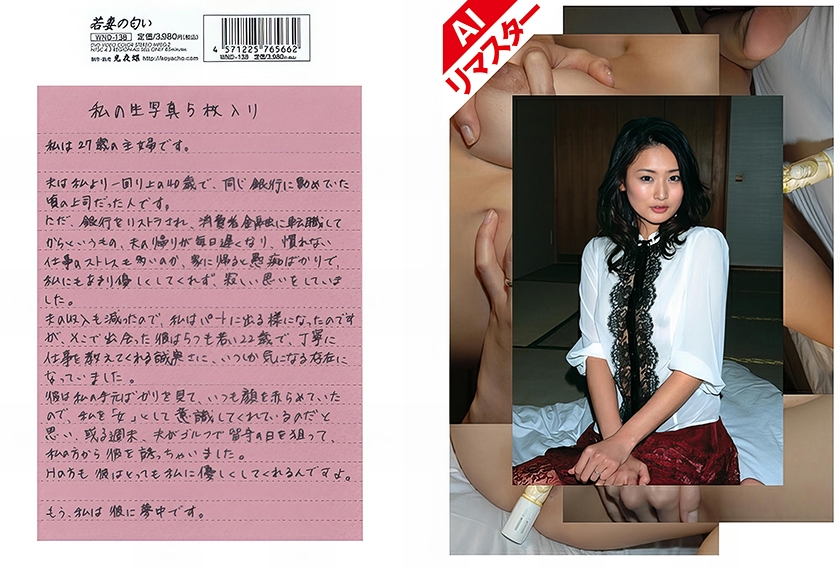 若妻の匂い
WND-138 定価/3,980円(税込)
DVD VIDEO COLOR STEREO MPEG-2
制作・販売 http://koyacho.com
4 571225 765662
WND-138 定価/3,980円(税込)
私の生写真5枚入り
私は27歳の主婦です。
夫は私より一回り上の40歳で、同じ銀行に勤めていた
頃の上司だった人です。
ただ、銀行をリストラされ、消費者金融に転職して
からというもの、夫の帰りが毎日遅くなり、慣れない
仕事のストレスも多いのか、家に帰ると愚痴ばかりで、
私にもあまり優しくしてくれず、寂しい思いをしていま
した。
夫の収入も減ったので、私はパートに出る様になったのです
が、そこで出会った彼は5つも若い22歳で、丁寧に
仕事を教えてくれる誠実さに、いつしか気になる存在に
なっていました。
彼は私の手元ばかりを見て、いつも顔を赤らめていた
ので、私を「女」として意識してくれているのだと
思い、或る週末、夫がゴルフで留守の日を狙って、
私の方から彼を誘っちゃいました。
Hの方も彼はとっても私に優しくしてくれるんですよ。
もう、私は彼に夢中です。
AI
リマスター